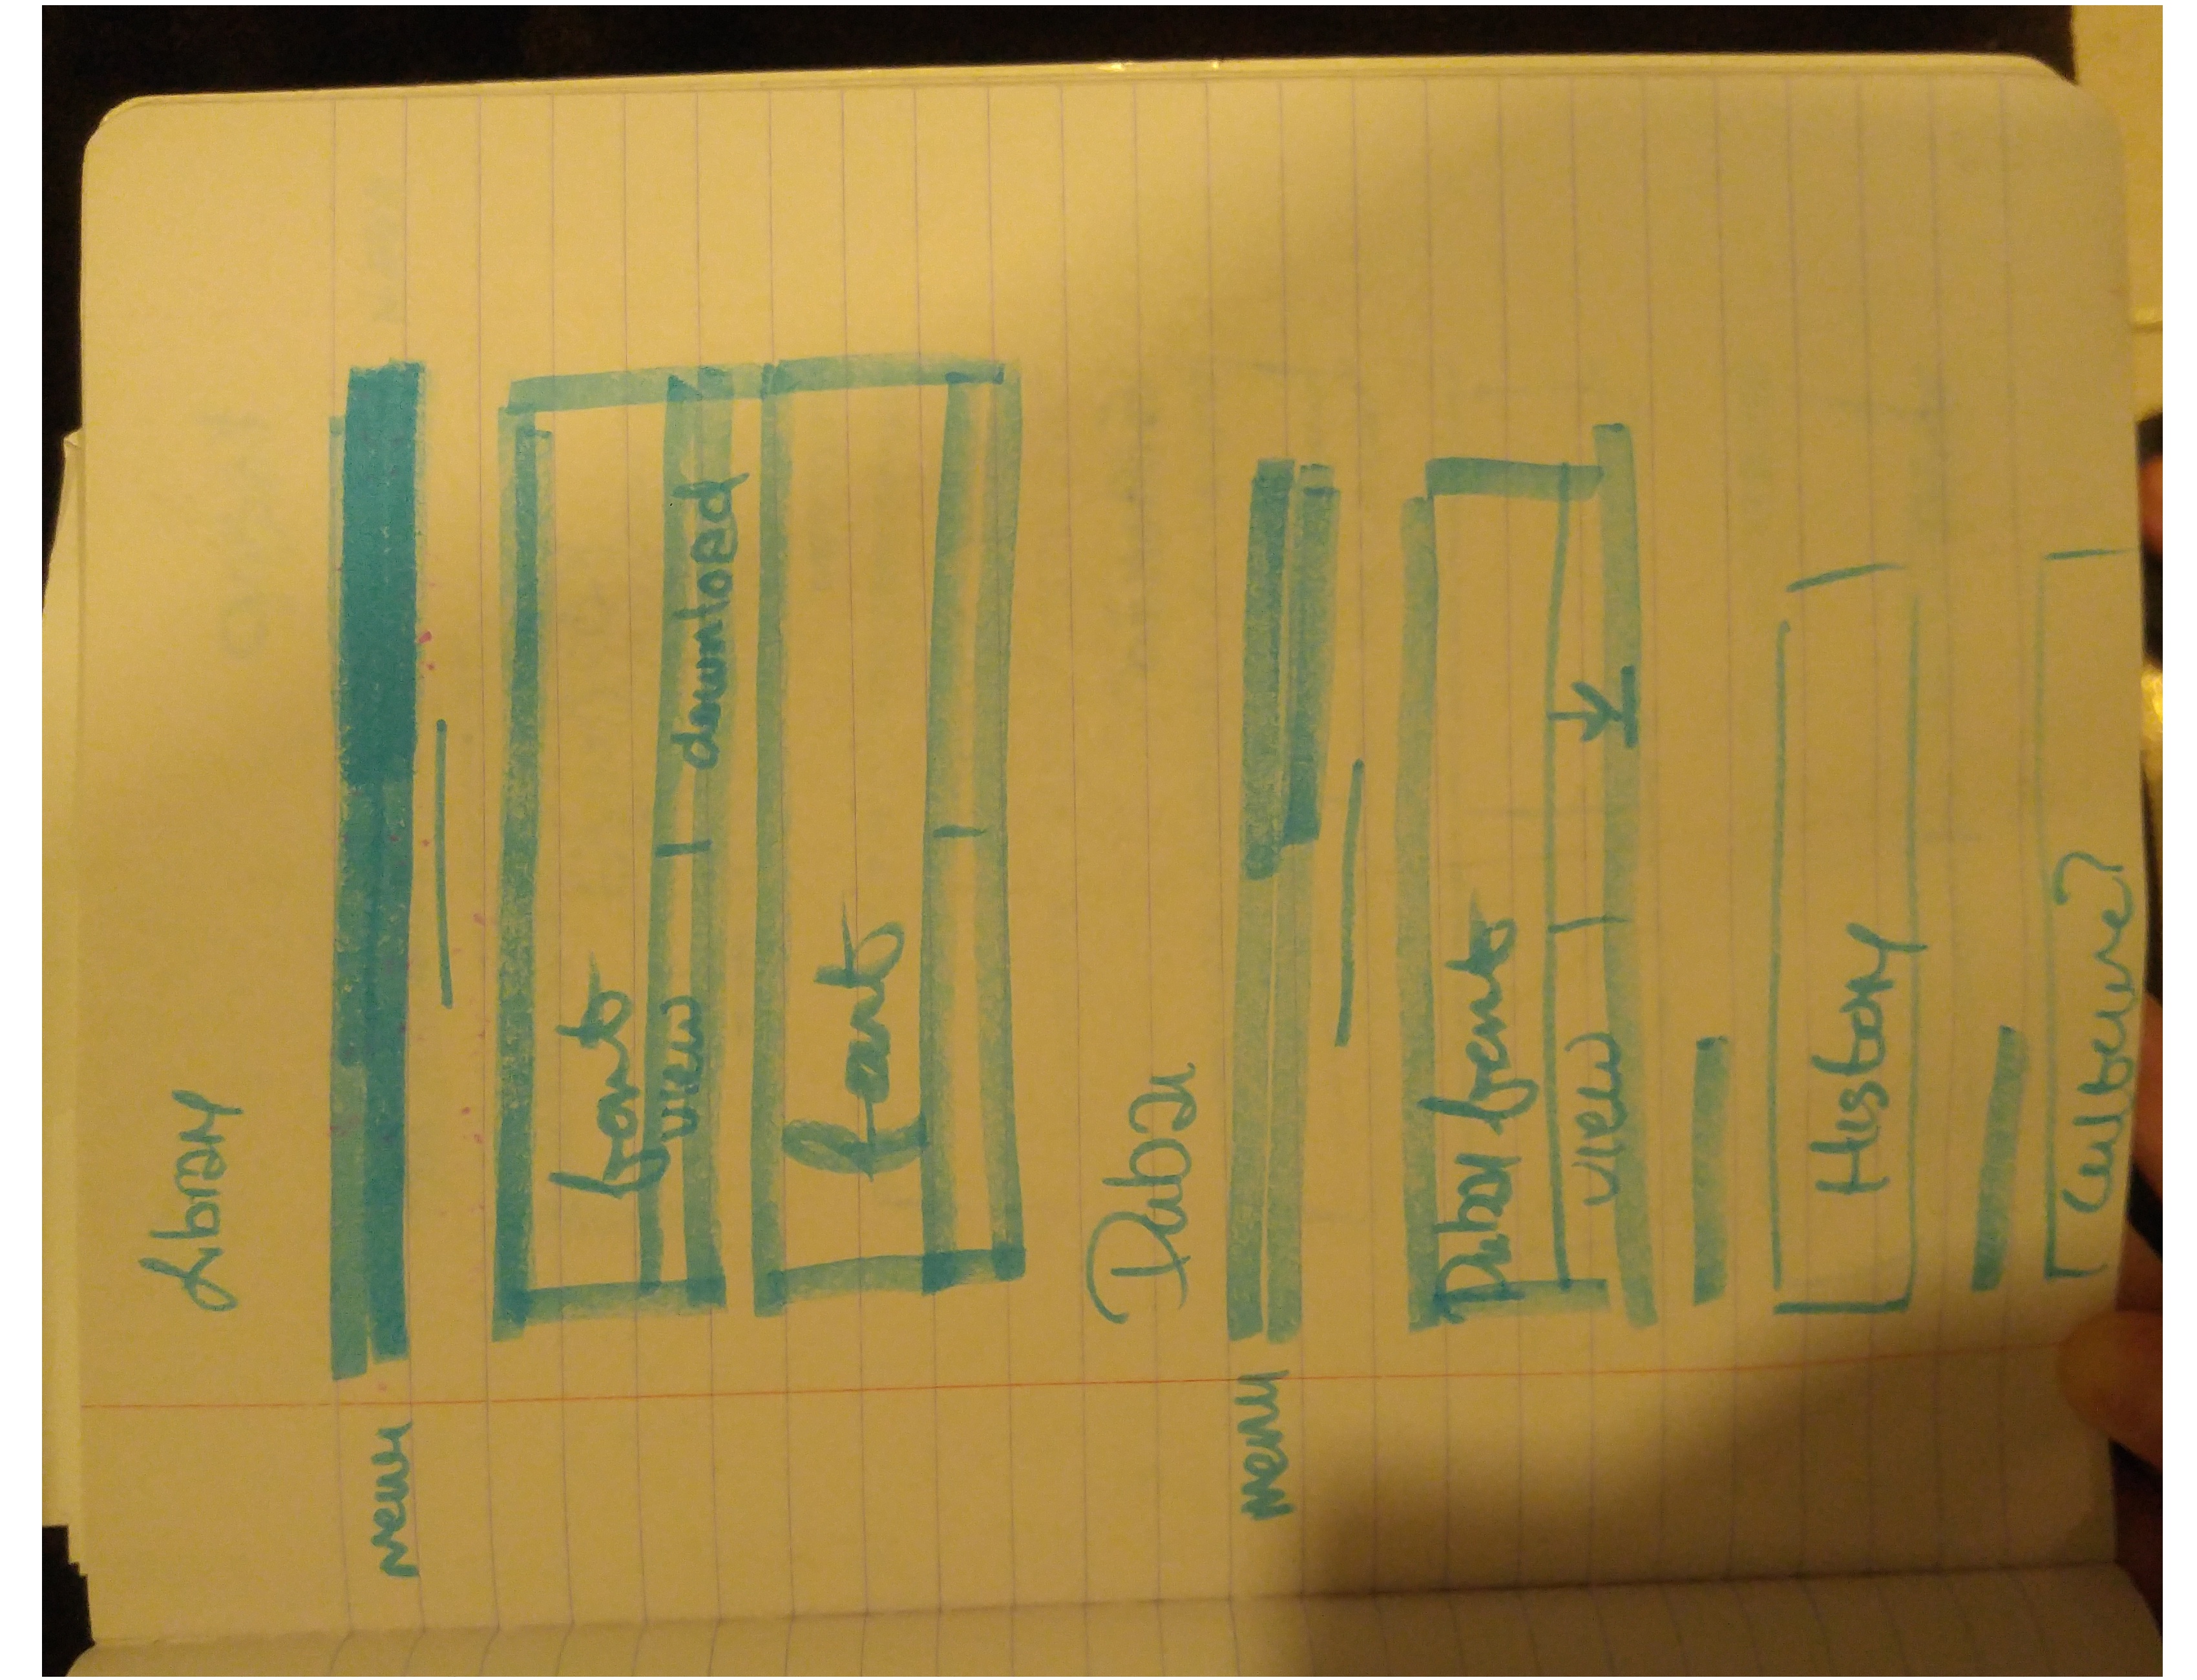 Library
Menu
font
view | download
font
Dubai
menu
Dubai font
view
History
Culture?